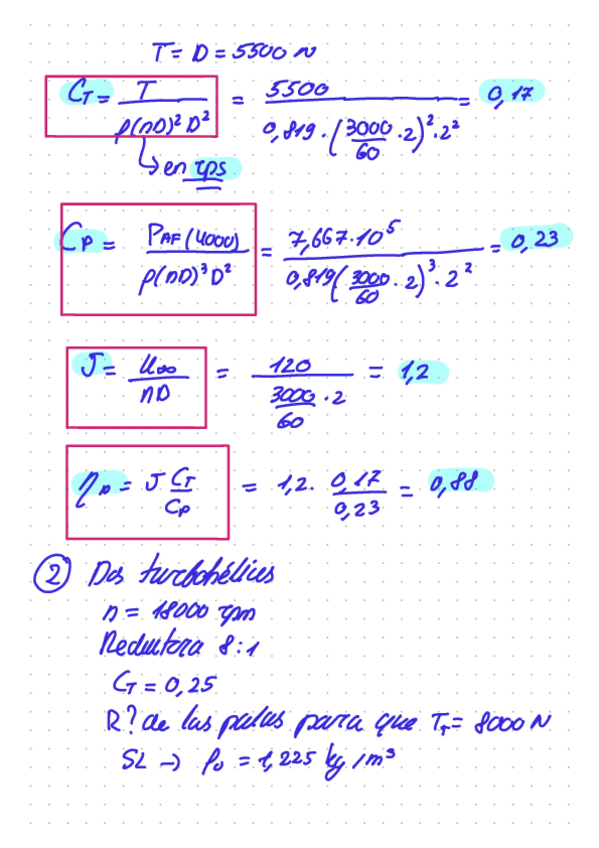 T = D = 5500 N
C_T = T / ρ(nD)² D² = 5500 / 0,819 · (3000/60 · 2)² · 2² = 0,17
↳ en rps
C_P = P_AF (4000) / ρ(nD)³ D² = 7,667 · 10⁵ / 0,819 (3000/60 · 2)³ · 2² = 0,23
J = U∞ / nD = 120 / 3000/60 · 2 = 1,2
η_p = J C_T / C_P = 1,2 · 0,17 / 0,23 = 0,88
② Dos turbohélices
n = 18000 rpm
Reductora 8:1
C_T = 0,25
R? de las palas para que T_T = 8000 N
SL → ρ₀ = 1,225 kg/m³